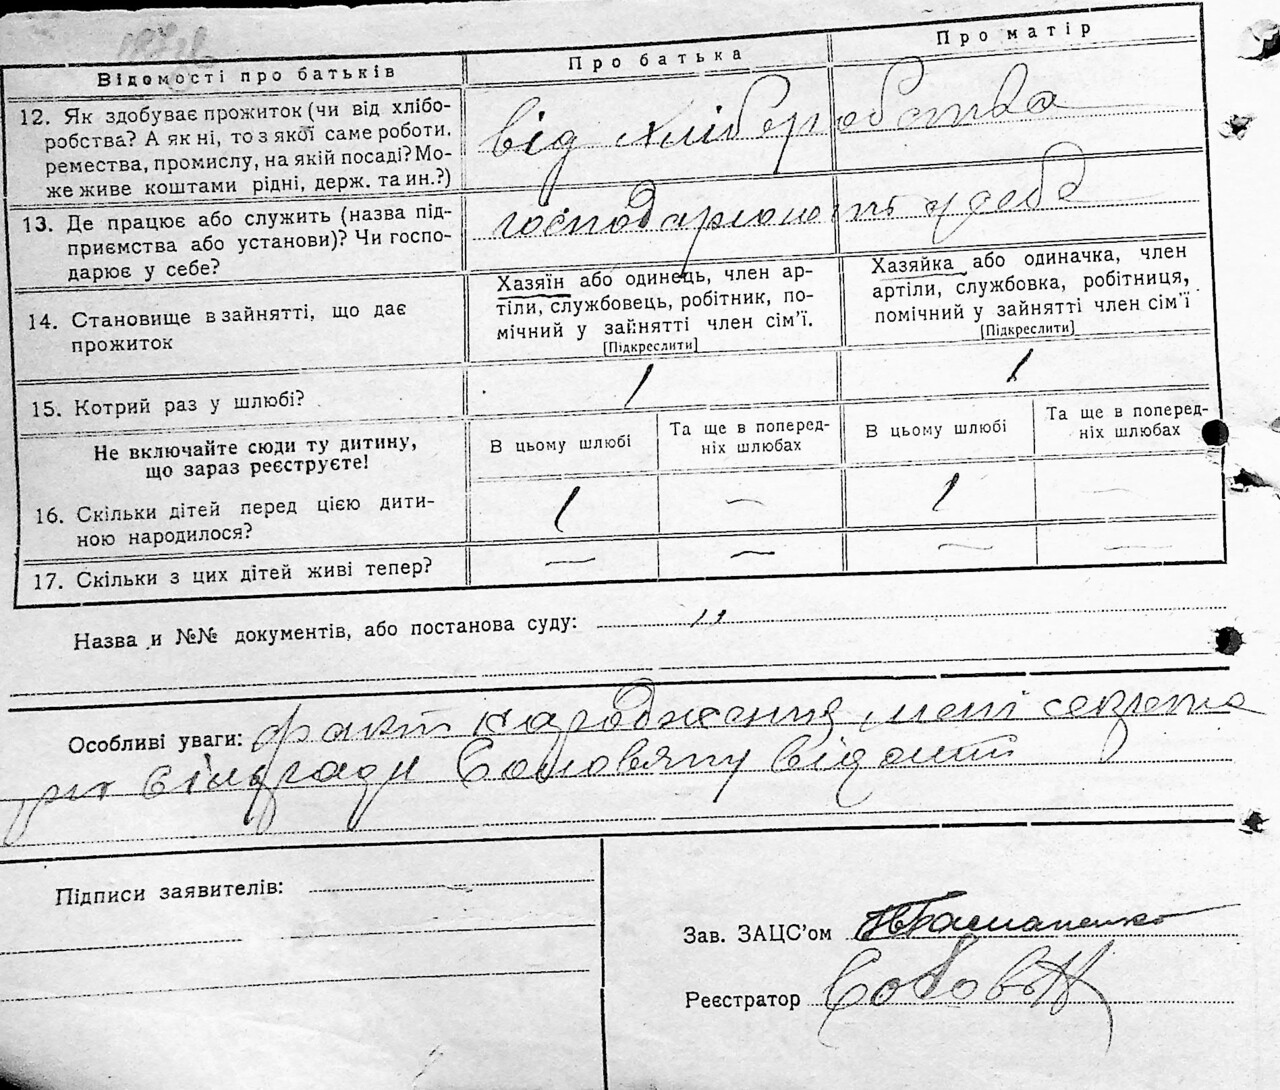 Відомості про батьків
Про батька
Про матір
12. Як здобуває прожиток (чи від хлібо-
робства? А як ні, то з якої саме роботи,
ремества, промислу, на якій посаді? Мо-
же живе коштами рідні, держ. та ин.?)
від хліберобства
13. Де працює або служить (назва під-
приємства або установи)? Чи госпо-
дарює у себе?
господарюють у себе
14. Становище в зайнятті, що дає
прожиток
Хазяїн або одинець, член ар-
тіли, службовець, робітник, по-
мічний у зайнятті член сім'ї.
[Підкреслити]
Хазяйка або одиначка, член
артіли, службовка, робітниця,
помічний у зайнятті член сім'ї
[Підкреслити]
15. Котрий раз у шлюбі?
1
1
Не включайте сюди ту дитину,
що зараз реєструєте!
В цьому шлюбі
Та ще в поперед-
ніх шлюбах
В цьому шлюбі
Та ще в поперед-
ніх шлюбах
16. Скільки дітей перед цією дити-
ною народилося?
1
—
1
—
17. Скільки з цих дітей живі тепер?
—
—
—
—
Назва и №№ документів, або постанова суду:
Особливі уваги: факт народження мені секрета
рю сільради відомий
Підписи заявителів:
Зав. ЗАЦС'ом
Реєстратор